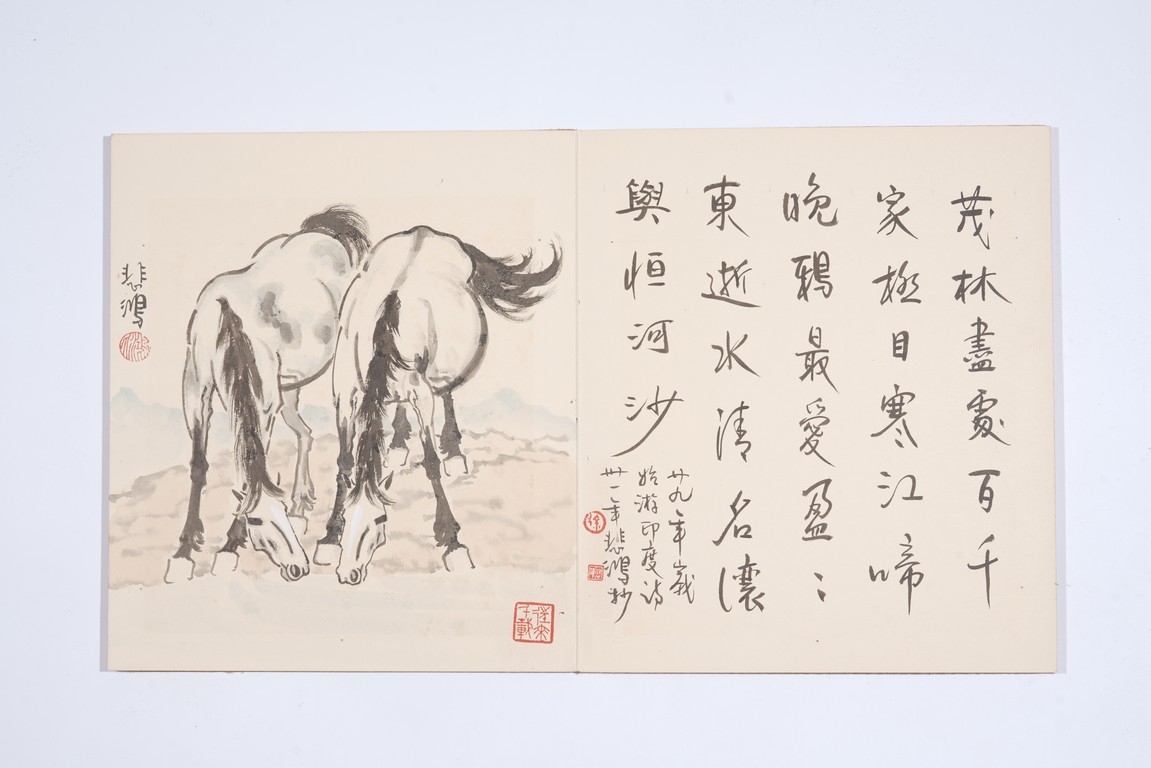 茂林盡處百千
家極目寒江啼
晚鴉最愛盈〻
東逝水清名讓
與恒河沙
廿九年歲
始游印度詩
卅一年悲鴻抄
徐
悲鴻
往來千載